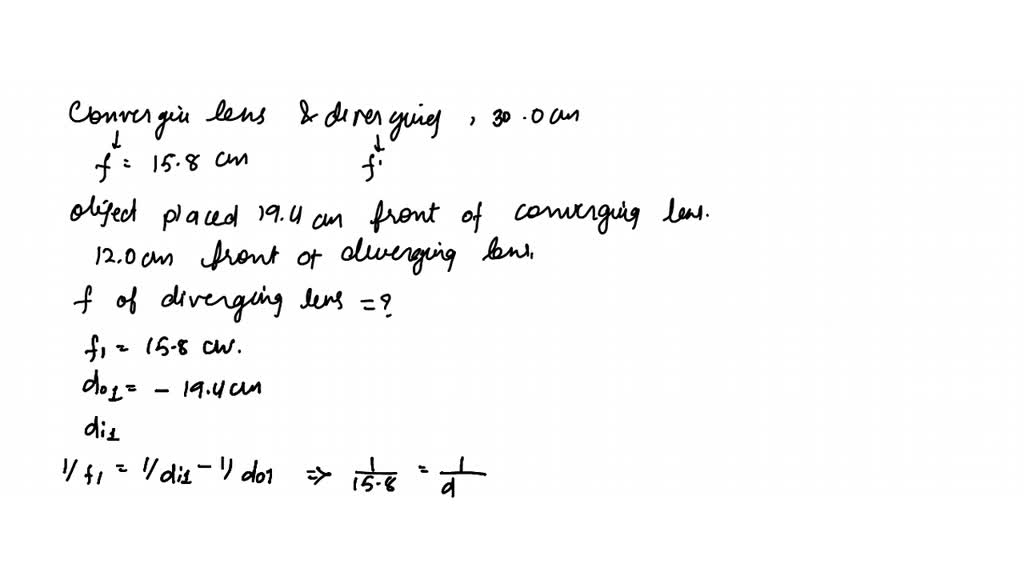 Convergin lens & diverging , 30.0 cm
↓ ↓
f = 15.8 cm f.
object placed 19.4 cm front of converging lens.
12.0 cm front of diverging lens.
f of diverging lens = ?
f₁ = 15.8 cm.
do₁ = - 19.4 cm
di₁
1/f₁ = 1/di₁ - 1/do1 => 1/15.8 = 1/d